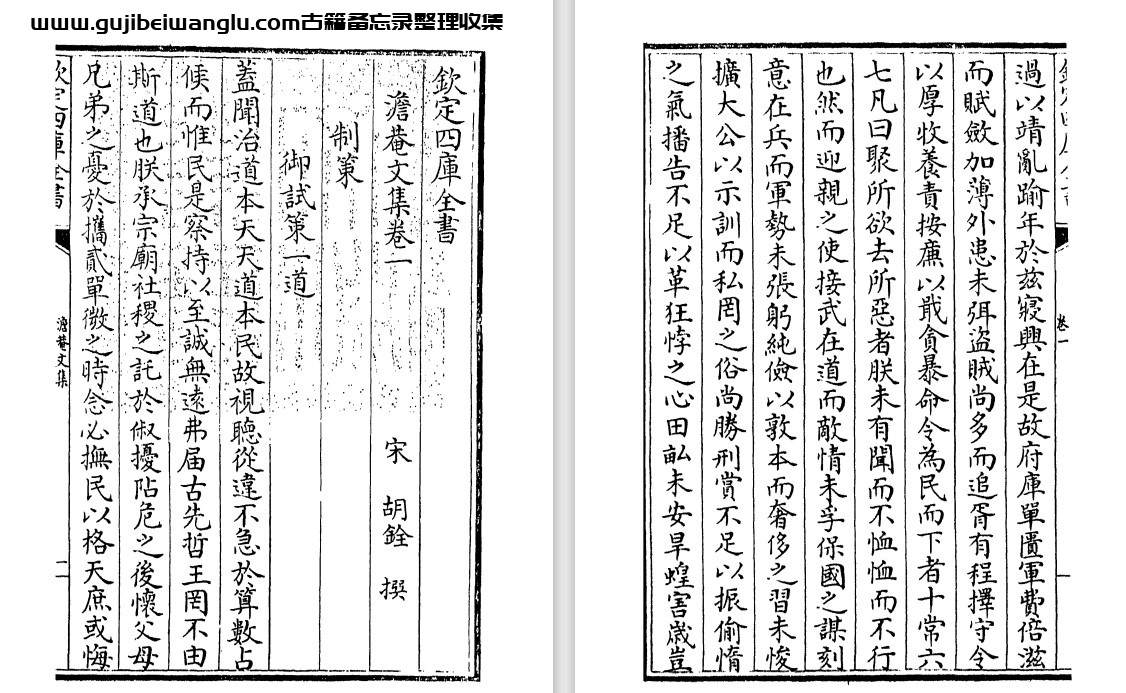 www.gujibeiwanglu.com古籍备忘录整理收集
欽定四庫全書
澹菴文集卷一
宋 胡銓 撰
制策
御試策一道
蓋聞治道本天天道本民故視聽從違不急於算數占
候而惟民是察持以至誠無遠弗届古先哲王罔不由
斯道也朕承宗廟社稷之託於俶擾阽危之後懷父母
兄弟之憂於攜貳單微之時念必撫民以格天庶或悔
欽定四庫全書
澹菴文集
一
過以靖亂踰年於兹寢興在是故府庫單匱軍費倍滋
而賦斂加薄外患未弭盗賊尚多而追胥有程擇守令
以厚牧養責按廉以戢貪暴命令為民而下者十常六
七凡曰聚所欲去所惡者朕未有聞而不恤恤而不行
也然而迎親之使接武在道而敵情未孚保國之謀刻
意在兵而軍勢未張躬純儉以敦本而奢侈之習未悛
擴大公以示訓而私罔之俗尚勝刑賞不足以振偷惰
之氣播告不足以革狂悖之心田畝未安旱蝗害嵗豈
卷一